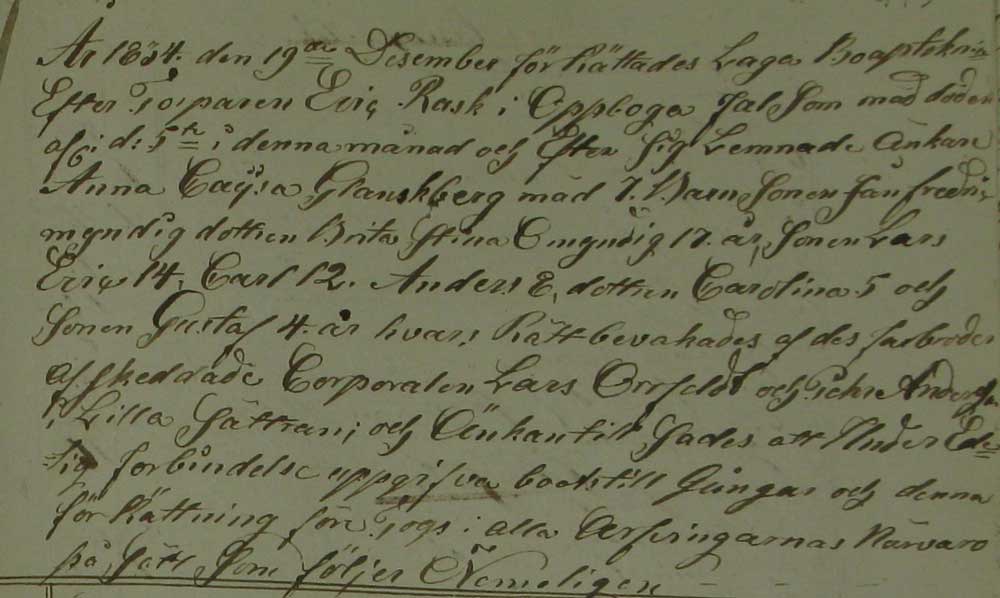 År 1834. den 19de Desember förrättades Laga Boupteknin
Efter Torparen Eric Rask i Oppboga Jal Som mäd döden
af i d: 5te i denna månad och Efter Sig Lemnade Änkan
Anna Caysa Glanshberg mäd 7. Barn Sonen Jan fredric
myndig dottren Brita Stina Omyndig 17. år, Sonen Lars
Eric 14, Carl 12. Anders 8, dottren Carolina 5 och
Sonen Gustaf 4. år hvars Rätt bevakades af des farbroder
afskeddade Corporalen Lars Orrfeldt och
i Lilla Sättran; och Änkan till Sades att Under Ede-
lig förbindelse uppgifva boets till Gångar och denna
för Rättning före Togs i alla Arfvingarnas Närvaro
på Sätt Som följer Nemeligen - - -